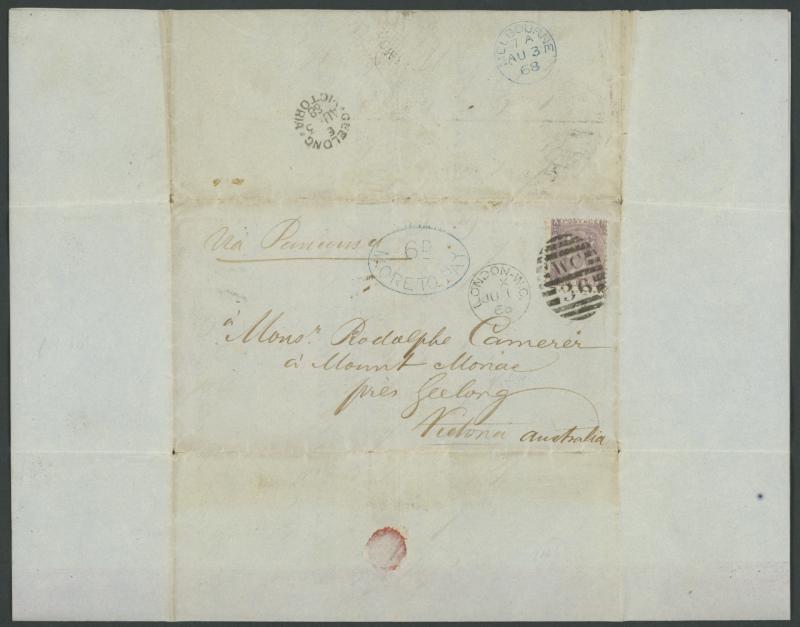 MELBOURNE
7 A
AU 3
68
GEELONG
E
AU 3
68
VICTORIA
POSTAGE
Via Panama
6D
MORE TO PAY
LONDON-W.C.
X
JU 1
68
WC
36
à Monsr. Rodolphe Camerer
à Mount Moriac
près Geelong
Victoria australia